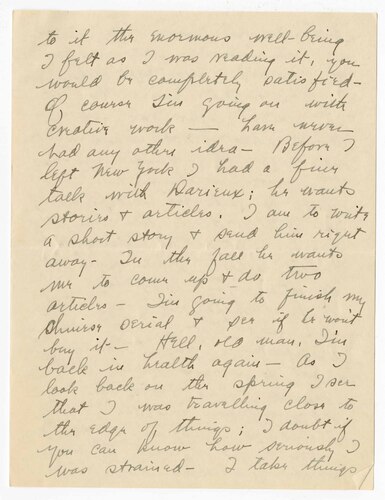 to it the enormous well-being
I felt as I was reading it, you
would be completely satisfied-
Of course I'm going on with
creative work — have never
had any other idea- Before I
left New York I had a fine
talk with Darieux; he wants
stories & articles. I am to write
a short story & send him right
away- In the fall he wants
me to come up & do two
articles- I'm going to finish my
Chinese serial & see if he won't
buy it- Hell, old man, I'm
back in health again- As I
look back on the spring I see
that I was travelling close to
the edge of things; I doubt if
you can know how seriously I
was strained- I take things